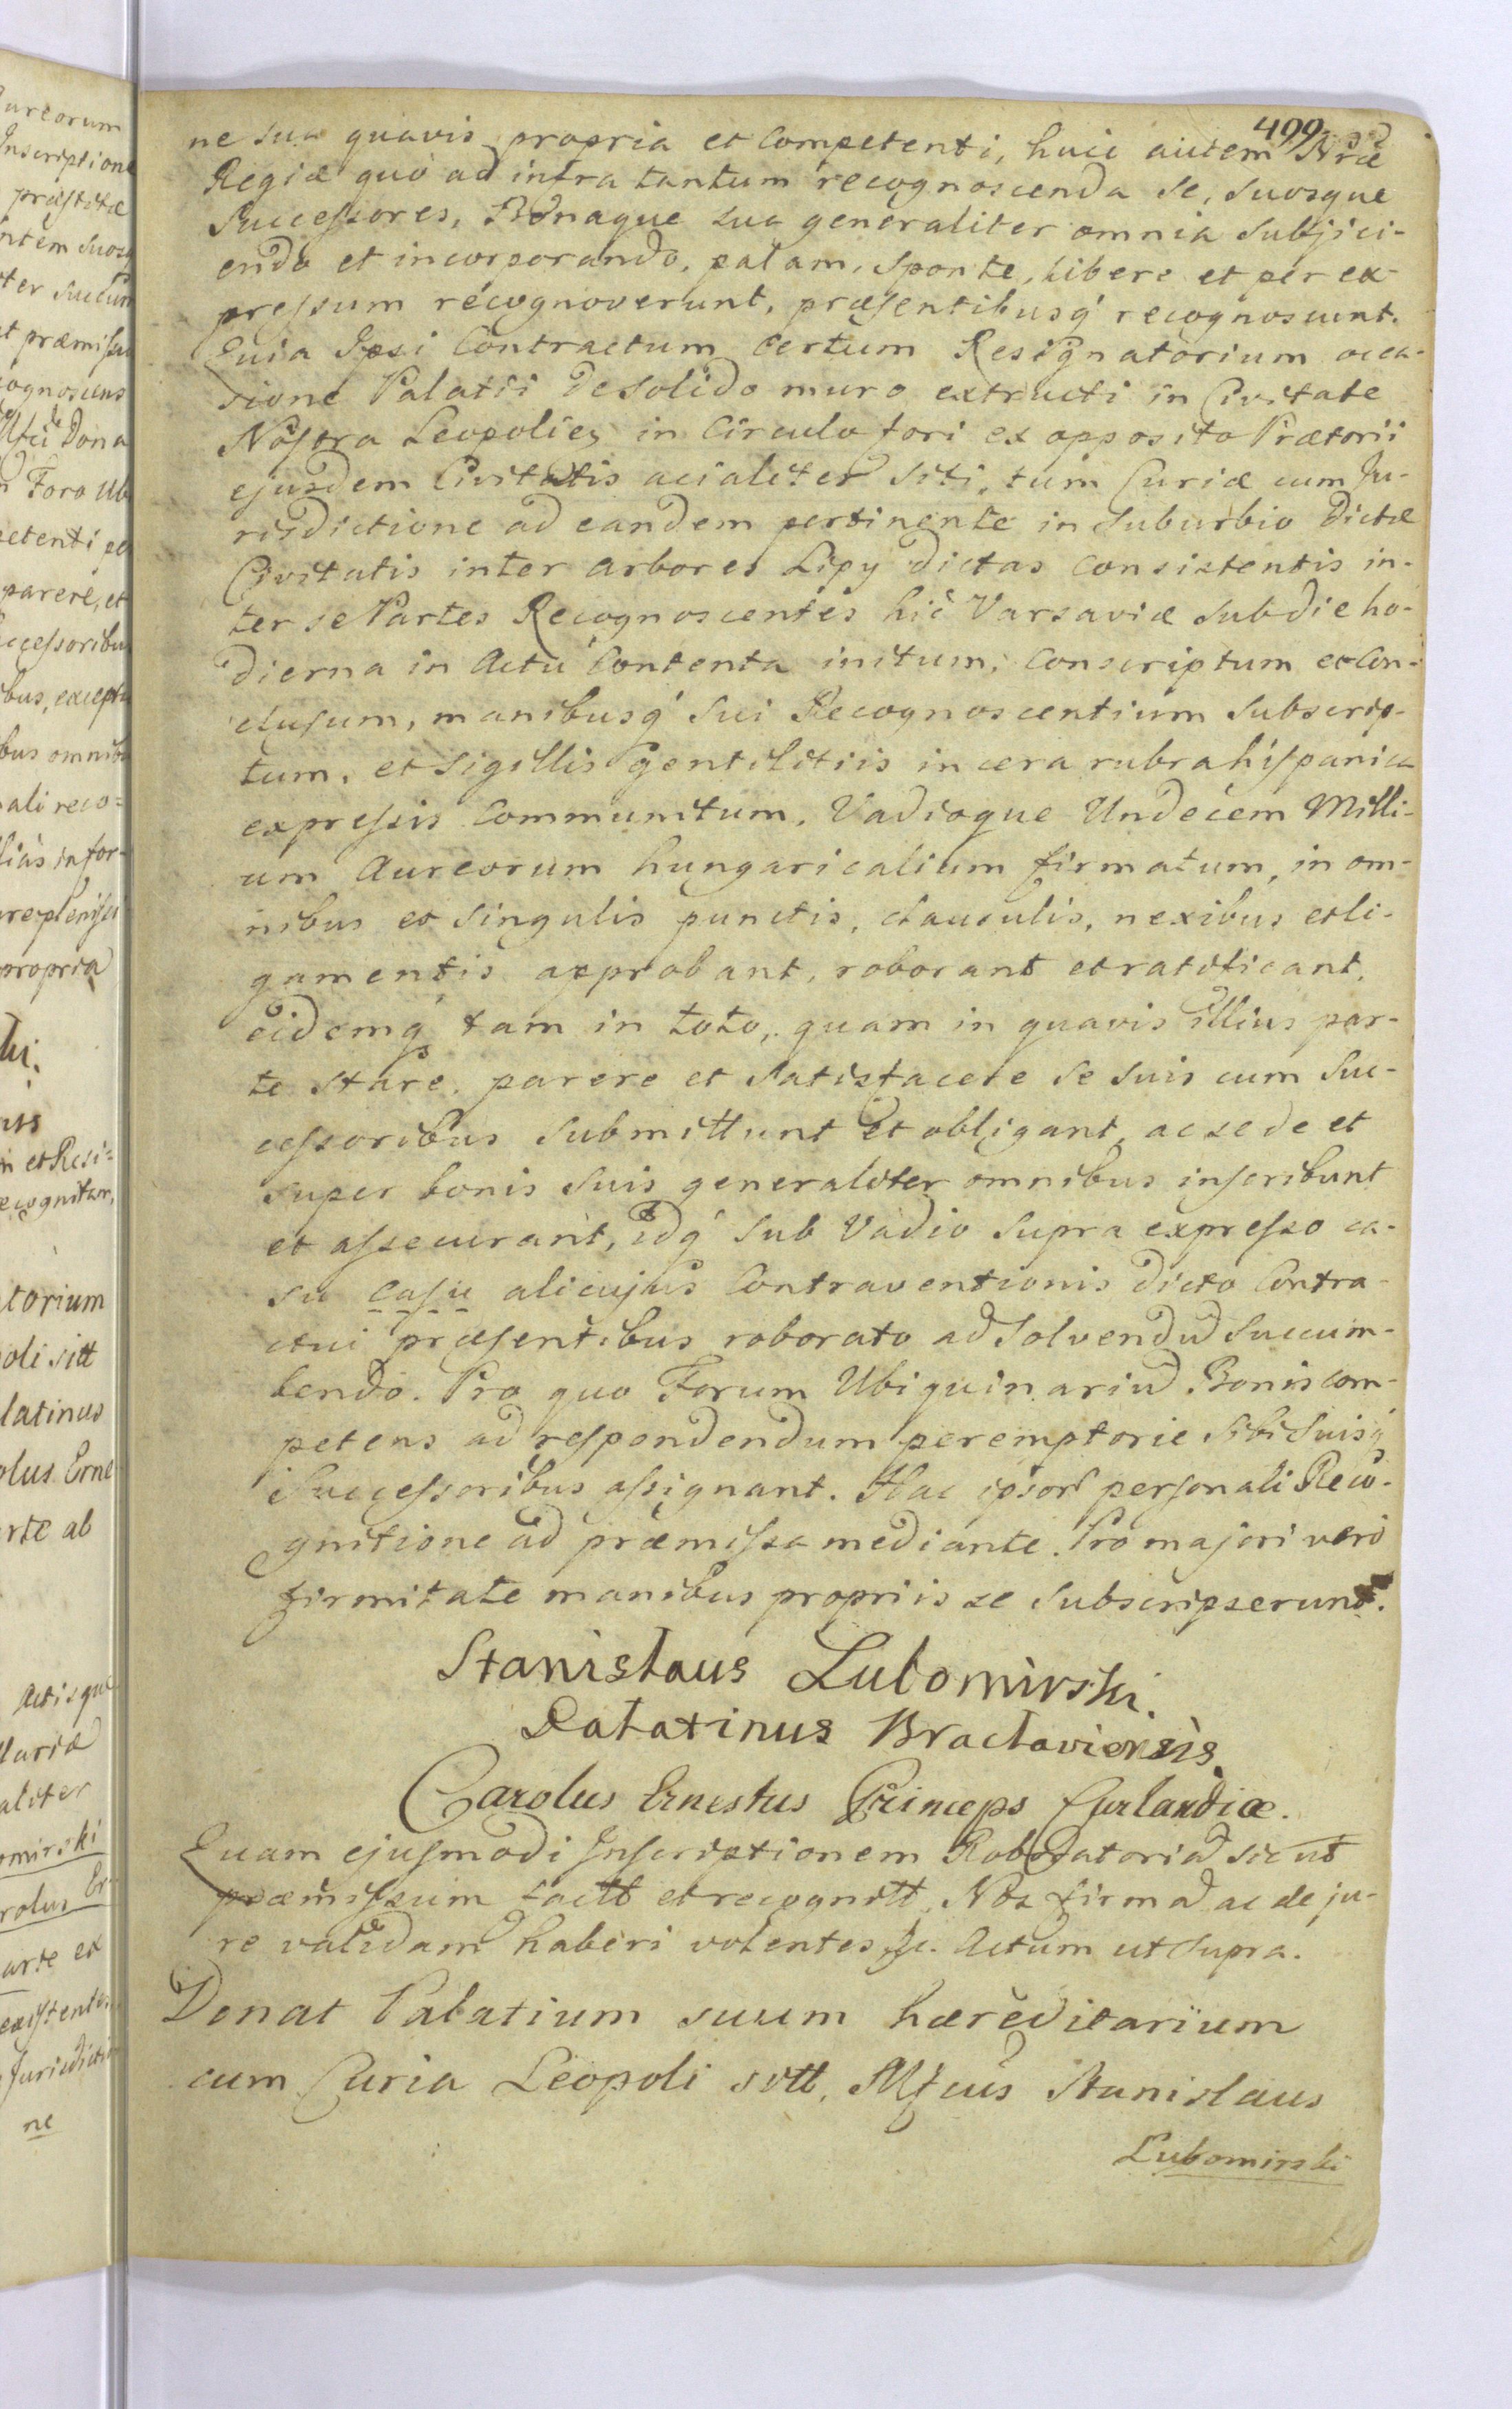 499
ne sua quavis propria et Competenti, huic autem Nræ
Regiæ quò ad infra tantum recognoscenda se, suosque
Successores, Bonaque sua generaliter omnia subjici-
endo et incorporando, palam, sponte, libere et per ex-
pressum récognoverunt, præsentibusq́ recognoscunt.
Quia Ipsi Contractum certum Resignatorium occa-
sione Palatii de solido muro extructi in Civitate
Nostra Leopolieñ in Circulo fori ex opposito Prætorii
ejusdem Civitatis acialiter siti, tum Curiæ cum Ju-
risdictione ad eandem pertinente in Suburbio dictæ
Civitatis inter arbores Lipy dictas consistentis in-
ter se Partes Recognoscentes hic Varsaviæ sub die ho-
dierna in Actu Contenta initum, Conscriptum et Con-
clusum, manibusq́ sui Recognoscentium subscrip-
tum, et sigillis gentilitiis in cera rubra hispanica
expressis Communitum, Vadioque Undecem Milli-
um Aureorum hungaricalium firmatum, in om-
nibus et singulis punctis, clausulis, nexibus et li-
gamentis approbant, roborant et ratificant,
eidemq́ tam in toto, quam in quavis illius par-
te stare, parere et satisfacere se suis cum suc-
cessoribus submittunt et obligant, ac se de et
super bonis suis generaliter omnibus inscribunt
et assecurant, idq́ sub Vadio supra expresso ca-
su casu alicujus Contraventionis dicto Contra-
ctui præsentibus roborato ad solvendũ succum-
bendo. Pro quo Forum Ubiquinariũ Bonis com-
petens ad respondendum peremptorie sibi suisq́
Successoribus assignant. Hac ipsor personali Reco-
gnitione ad præmissa mediante. Pro majori verò
firmitate manibus propriis se subscripserunt.
Stanislaus Lubomirski.
Palatinus Braclaviensis.
Carolus Ernestus Princeps Curlandiæ.
Quam ejusmodi Inscriptionem Roboratoriã sic ut
præmissum factt et recognitt, Nos firmã ac de ju-
re validam haberi volentes &c. Actum ut supra.
Donat Palatium suum hæreditarium
cum Curia Leopoli sitt. Mfcus Stanislaus
Lubomirski